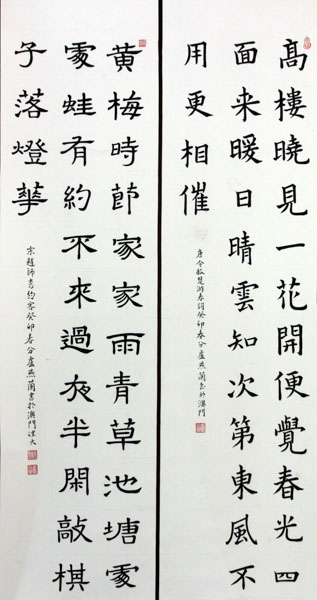 髙樓曉見一花開便覺春光四
面来暖日晴雲知次第東風不
用更相催
唐令狐楚游春詞癸卯春分盧燕蘭書於澳門
黄梅時節家家雨青草池塘處
處蛙有約不來過夜半閑敲棋
子落燈華
宋趙師秀約客癸卯春分盧燕蘭書於澳門